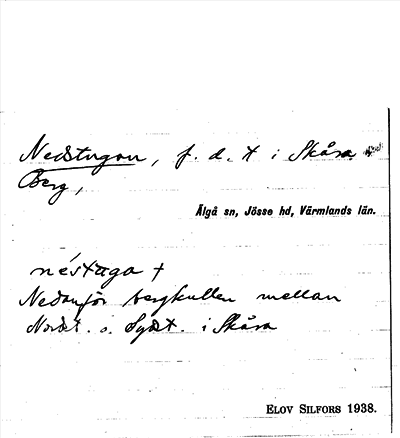 Nedstugan, f. d. t i Skåra
Berg,
Älgå sn, Jösse hd, Värmlands län.
néstaga †
Nedanför bergkullen mellan
Nordst. o. Sydst. i Skåra
ELOV SILFORS 1938.